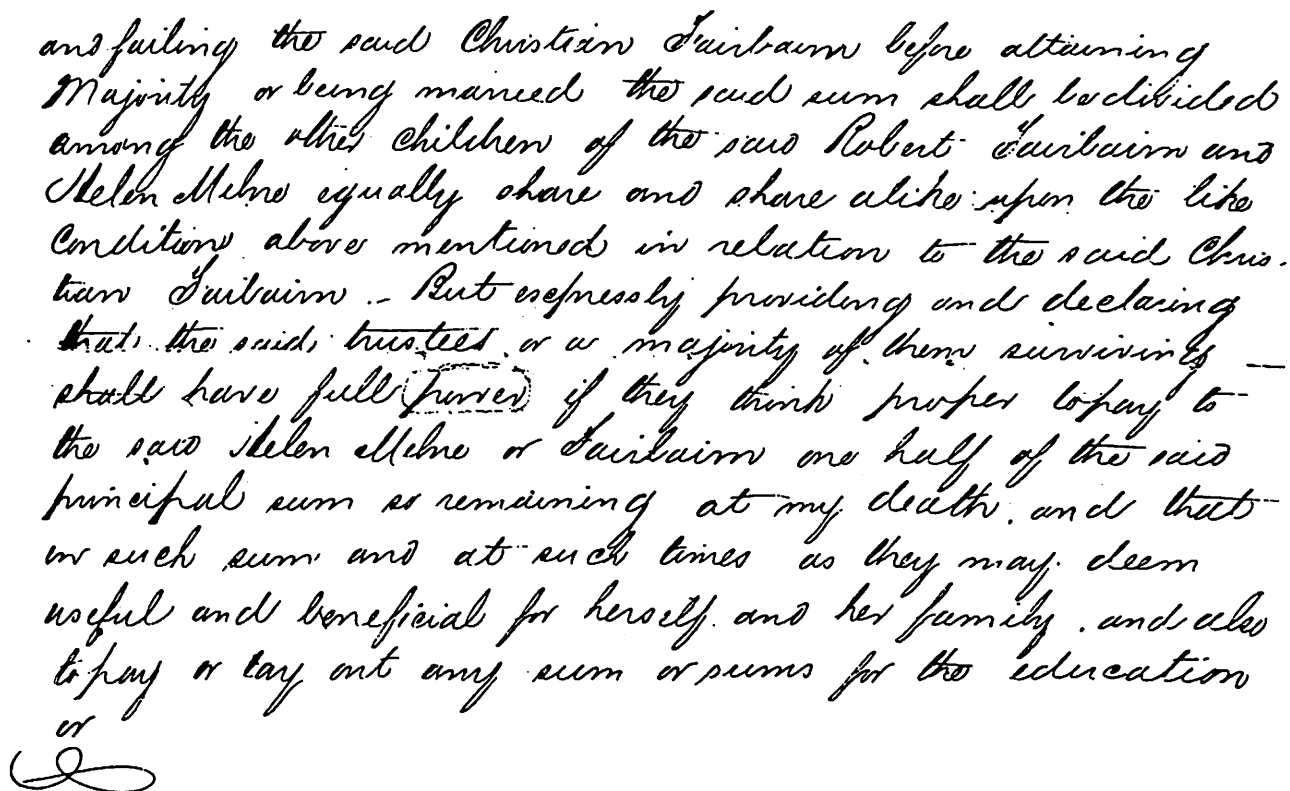 and failing the said Christian Fairbairn before attaining
Majority or being married the said sum shall be divided
among the other children of the said Robert Fairbairn and
Helen Milne equally share and share alike upon the like
Condition above mentioned in relation to the said Chris-
tian Fairbairn - But expressly providing and declaring
that the said trustees or a majority of them surviving —
shall have full power if they think proper to pay to
the said Helen Milne or Fairbairn one half of the said
principal sum so remaining at my death. and that
in such sum and at such times as they may deem
useful and beneficial for herself and her family. and also
to pay or lay out any sum or sums for the education
or